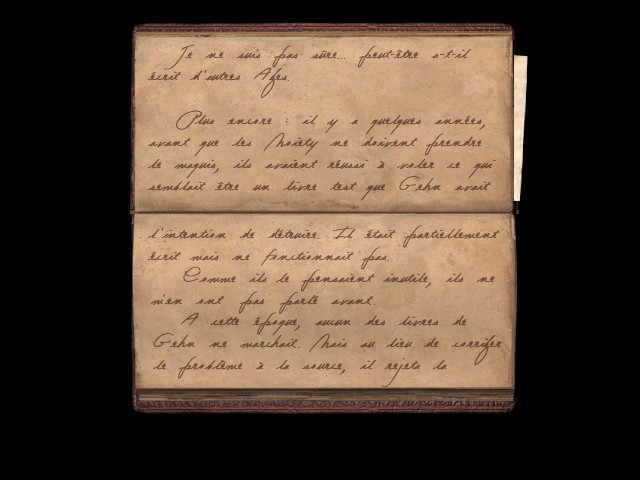 Je ne suis pas sûre... peut-être a-t-il
écrit d'autres Âges.
Plus encore : il y a quelques années,
avant que les Moiety ne doivent prendre
le maquis, ils avaient réussi à voler ce qui
semblait être un livre test que Gehn avait
l'intention de détruire. Il était partiellement
écrit mais ne fonctionnait pas.
Comme ils le pensaient inutile, ils ne
m'en ont pas parlé avant.
A cette époque, aucun des livres de
Gehn ne marchait. Mais au lieu de corriger
le problème à la source, il rejeta la